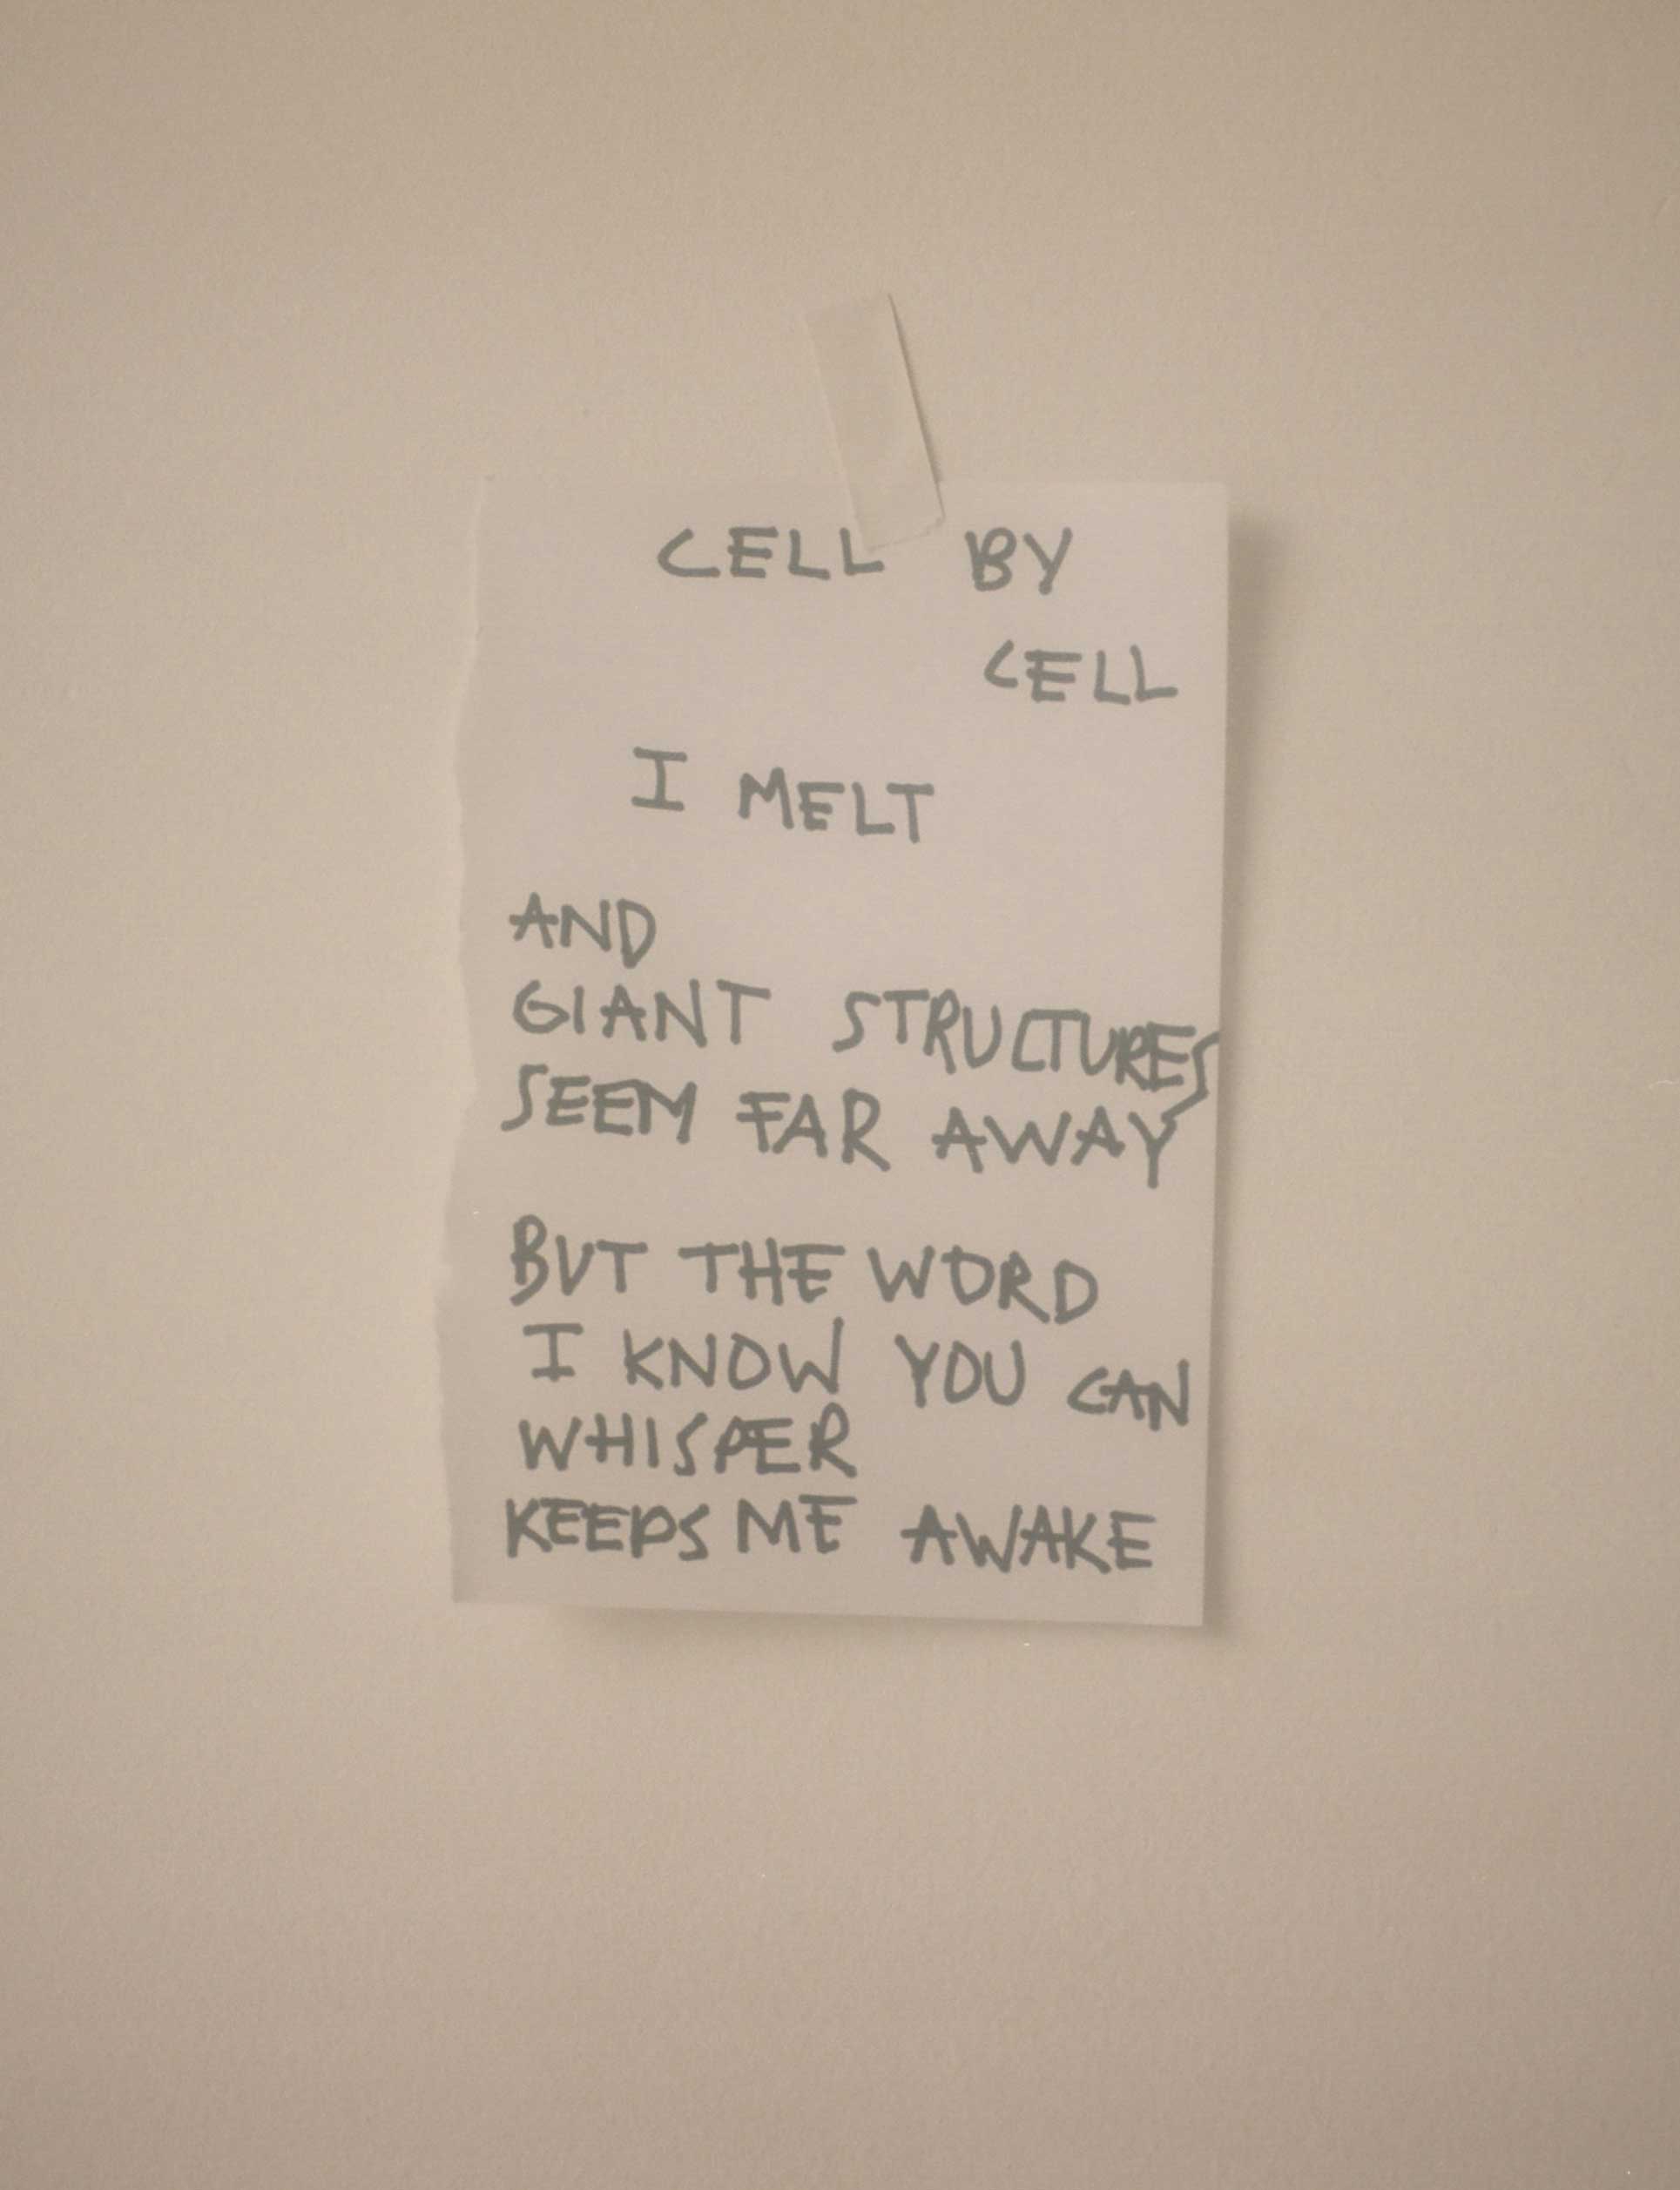 CELL BY
CELL
I MELT
AND
GIANT STRUCTURES
SEEM FAR AWAY
BUT THE WORD
I KNOW YOU CAN
WHISPER
KEEPS ME AWAKE